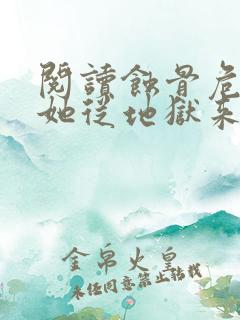 閱讀蝕骨危
她從地獄來
金帛火皇
未任同意禁止轉載